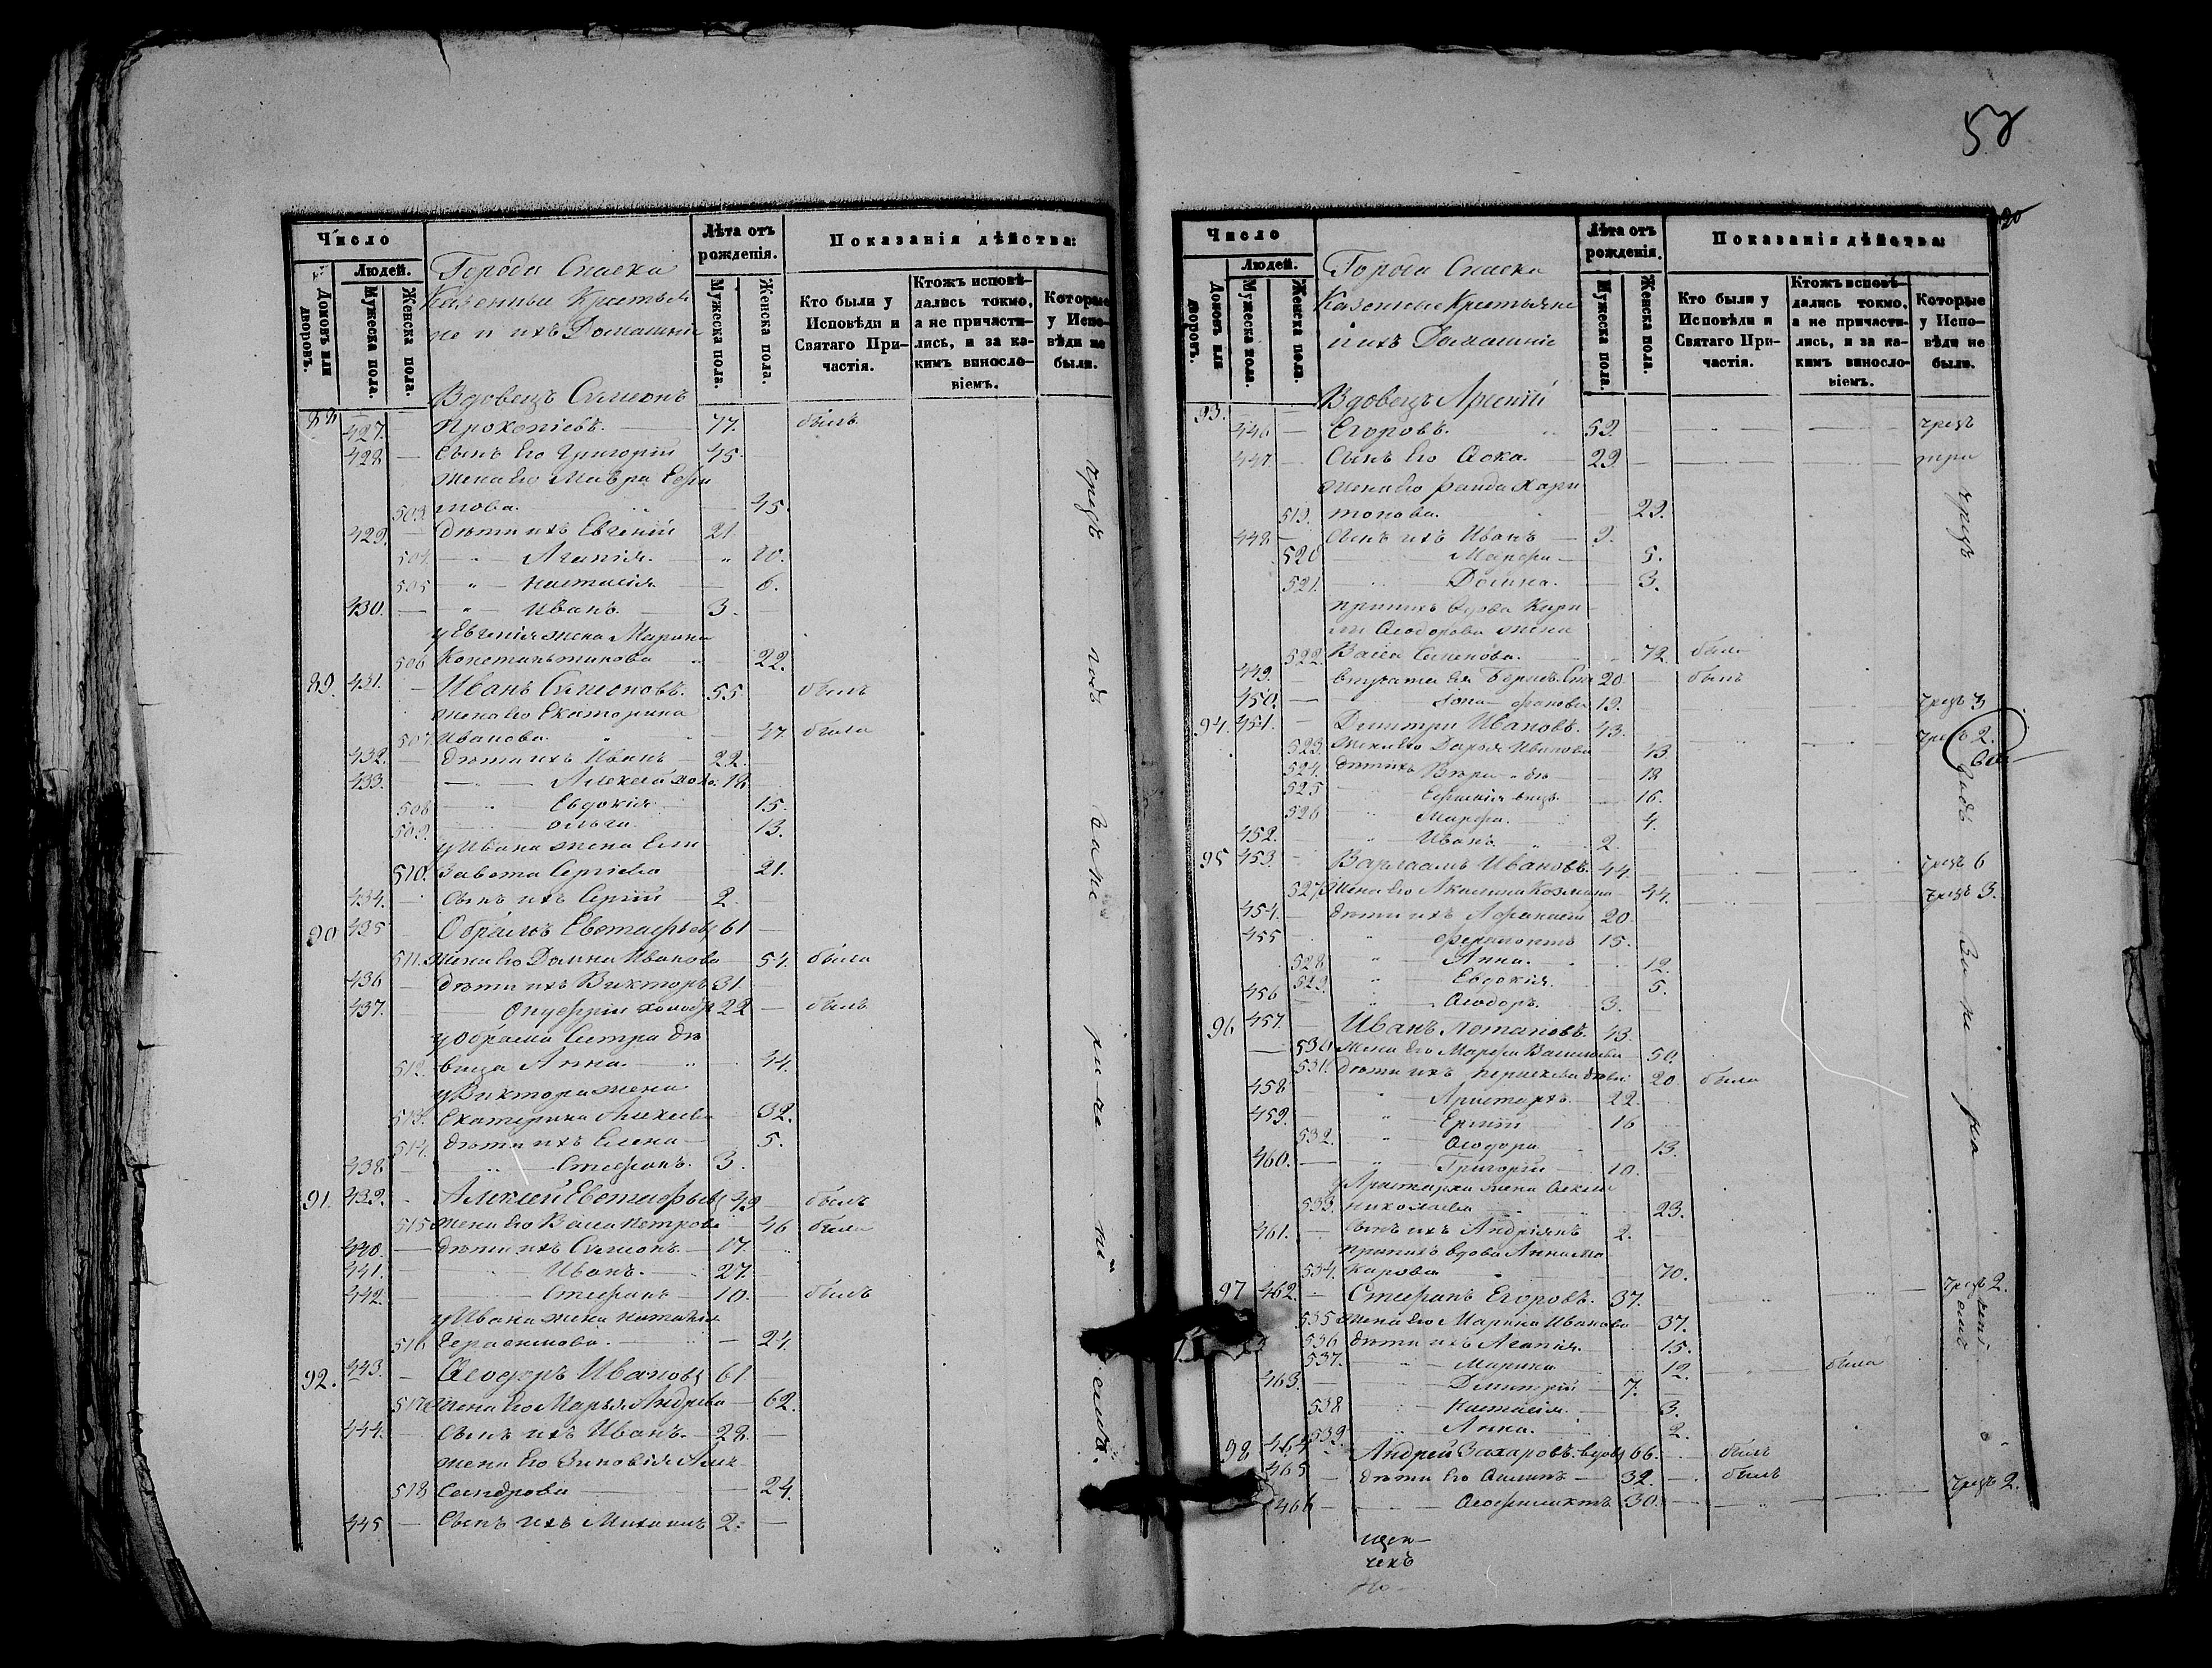 58
20
Число
Лѣта отъ рожденія.
Показанія дѣйства:
Домовъ или дворовъ.
Людей.
Мужеска пола.
Женска пола.
Города Спаска
Казенныи Крестья
не и ихъ Домашніе
Мужеска пола.
Женска пола.
Кто были у Исповѣди и Святаго Причастія.
Ктожъ исповѣдались токмо, а не причастились, и за какимъ винословіемъ.
Которые у Исповѣди не были.
Вдовецъ Симеонъ
88 427. Прокопіевъ. 77. былъ
428 Сынъ Его Григорій 45.
Жена Его Мавра
503. 45.
429. дѣти ихъ Евгеній 21.
504. Агапія. 10.
505 Настасія 6.
430. Иванъ. 3.
у Евгенія жена Марина
506 Константинова 22.
89. 431. Иванъ Симеоновъ. 55. былъ
жена Его Екатерина
507. Иванова. 47. была
432. дѣти ихъ Иванъ 22.
433. Алексей холо: 18
508 Евдокія 15.
509. Ольга 13.
у Ивана жена Ели
510. завета Сергіева 21.
434. Сынъ ихъ Сергій 2.
90 435 Обрамъ Евстафьевъ 61
511. жена Его Домна Иванова 54. была
436 дѣти ихъ Викторъ 31.
437. Онуфрій холосд 22 былъ
у Обрама Сестра дѣ
512. вица Анна. 44.
у Виктора жена
513. Екатерина Алексеева 32.
514. дѣти ихъ Елена 5.
438 Стефанъ. 3.
91. 439. Алексей Евстафьевъ 49 былъ
515 жена Его Васса Петрова 46 была
440. дѣти ихъ Симеонъ 17.
441. Иванъ. 27.
442. Стефанъ 10. былъ
у Ивана жена Наталія
516 Герасимова. 24.
92. 443. Ѳеодоръ Ивановъ 61
517 жена Его Марья Андреева 62.
444. Сынъ ихъ Иванъ. 28.
жена Его Зиновія Алек
518 сандрова 24.
445 Сынъ ихъ Михаилъ 2.
чрезъ годъ
Число
Лѣта отъ рожденія.
Показанія дѣйства:
Домовъ или дворовъ.
Людей.
Мужеска пола.
Женска пола.
Города Спаска
Казенные Крестьяне
и ихъ Домашніе
Мужеска пола.
Женска пола.
Кто были у Исповѣди и Святаго Причастія.
Ктожъ исповѣдались токмо, а не причастились, и за какимъ винословіемъ.
Которые у Исповѣди не были.
93. Вдовецъ Арсеній
446 Егоровъ. 52. чрезъ
447. Сынъ Его Фока. 29. три
жена Его Хари
519. тонова. 29.
448 Сынъ ихъ Иванъ 9.
520 Марфа 5.
521. Домна. 3.
при нихъ вдова Кири
ла Ѳеодорова жена
522. Васса Семенова. 72. была
449. внучата Ея Борисъ 20 былъ
450. 19. чрезъ 3
94. 451. Димитри Ивановъ. 43. чрезъ 2.
523. жена Его Дарья Иванова 43.
524. дѣти ихъ 18
525 16.
526 Марфа. 4.
452. Иванъ 2.
95 453. Варлаамъ Ивановъ. 44. чрезъ 6
527. жена Его Акилина Козмина 44. чрезъ 3.
454. дѣти ихъ Афанасій 20
455 15.
528 Анна. 12.
529. Евдокія. 5.
456 Ѳеодоръ. 3.
96 457. Иванъ Потаповъ. 43.
530 жена Его Марфа Васильева 50.
531. дѣти ихъ 20 была
458 Аристархъ. 22.
459. 16
532. Ѳеодора 13.
460. Григорій 10.
у Аристарха жена Ѳекла
533. Николаева 23.
461. Сынъ ихъ Андріянъ 2.
при нихъ вдова Анна Ма
534. карова 70.
97 462. Стефанъ Егоровъ. 37. чрезъ 2.
535 жена Его Марина Иванова 37.
536. дѣти ихъ Агапія. 15.
537. Марина 12. была
463. Димитрій 7.
538 Настасія. 3.
539. Анна. 2.
98 464 Андрей Захаровъ вдовъ 66. былъ
465 дѣти Его 32. былъ
466 Ѳеофилактъ 30. чрезъ 2.